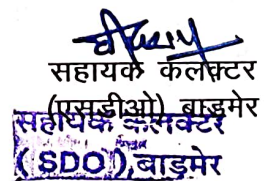 सहायक कलेक्टर
(एसडीओ) बाड़मेर
सहायक कलक्टर
(SDO), बाड़मेर